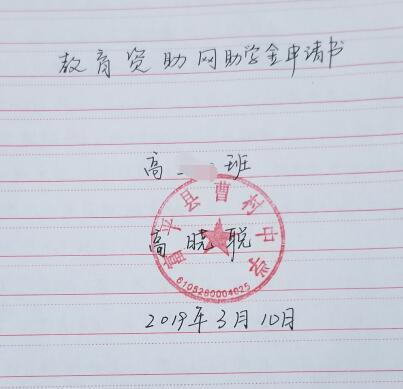 教育资助网助学金申请书
高 班
富平县曹村中学
高晓聪
6105280004825
2019年3月10日